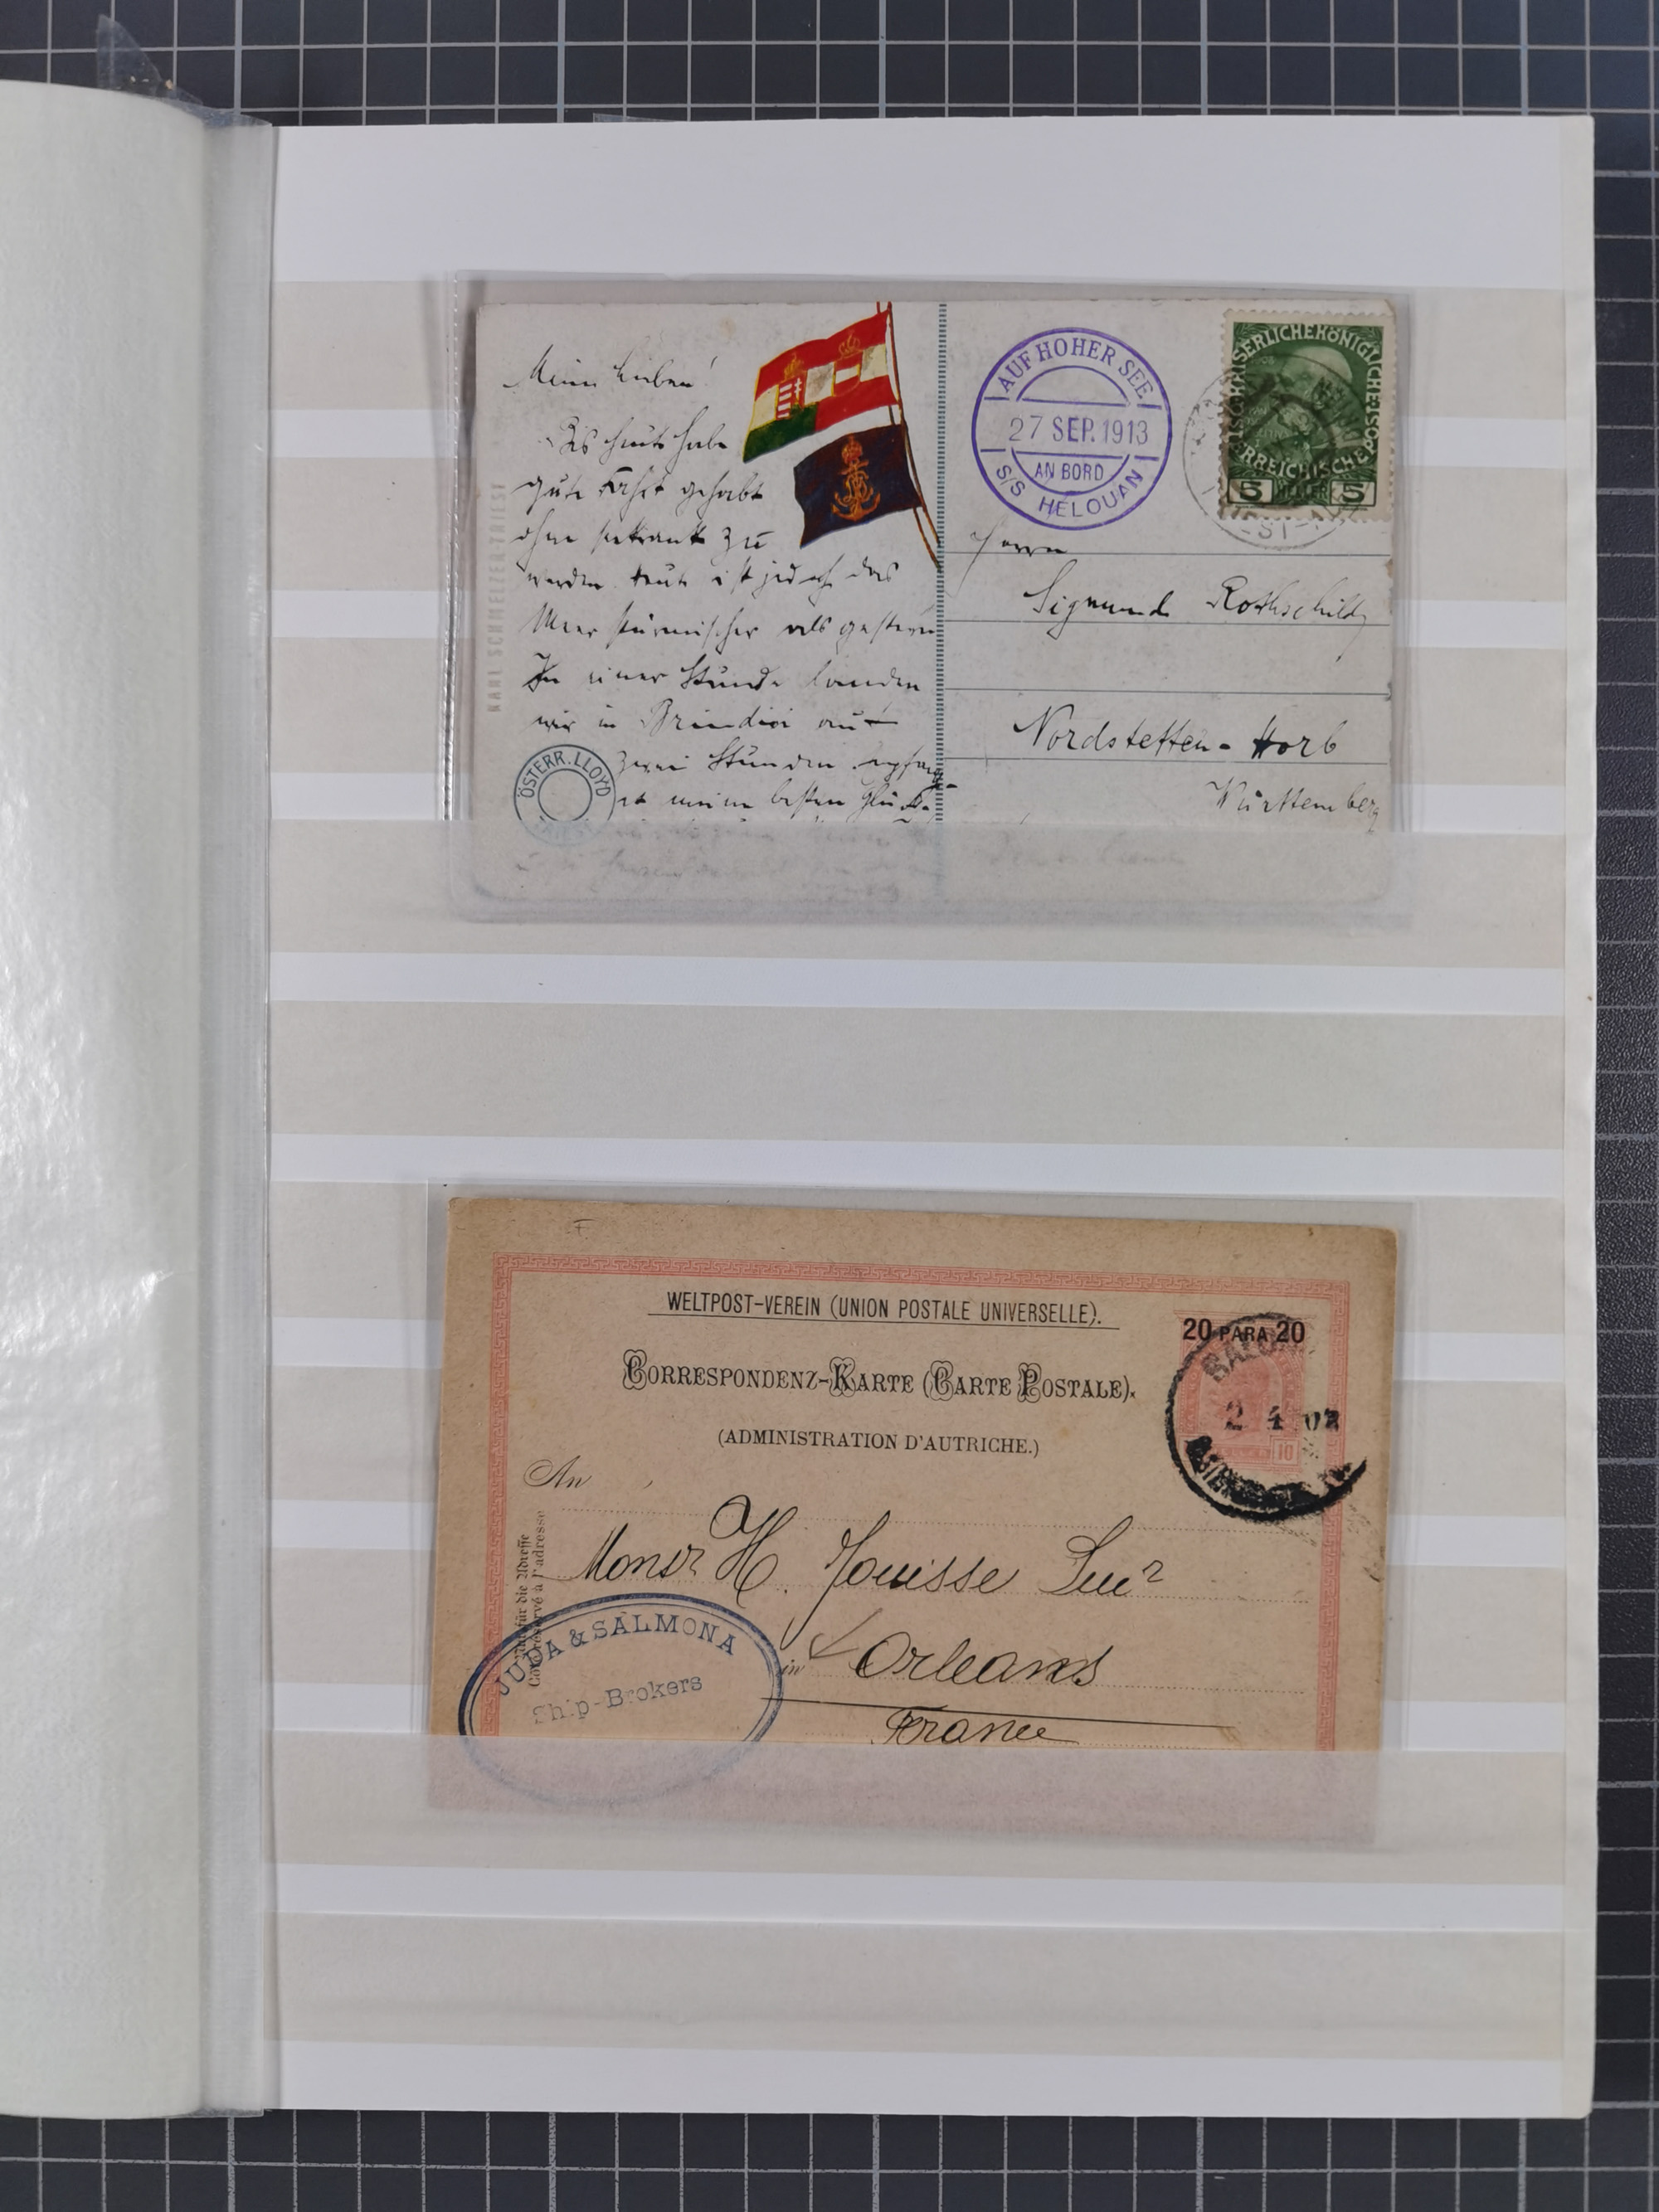 Meine Lieben!
Bis heute habe
gute Fahrt gehabt
ohne seekrank zu
werden. Heute ist jedoch das
Meer stürmischer als gestern
In einer Stunde landen
wir in Brindisi auf
zwei Stunden.
meine besten Glück-
KARL SCHMELZER-TRIEST
ÖSTERR. LLOYD
AUF HOHER SEE
27 SEP. 1913
AN BORD
S/S HELOUAN
KAISERLICHEKÖNIGLICHE
ÖSTERREICHISCHE
5 HELLER 5
Herrn
Sigmund Rothschild,
Nordstetten-Horb
Württemberg
WELTPOST-VEREIN (UNION POSTALE UNIVERSELLE).
CORRESPONDENZ-KARTE (CARTE POSTALE).
(ADMINISTRATION D'AUTRICHE.)
20 PARA 20
10
2 4 02
An
Monsr H. Jouisse Sucr
in Orleans
France
Nur für die Adresse
Côté réservé à l'adresse
JUDA & SALMONA
Ship-Brokers